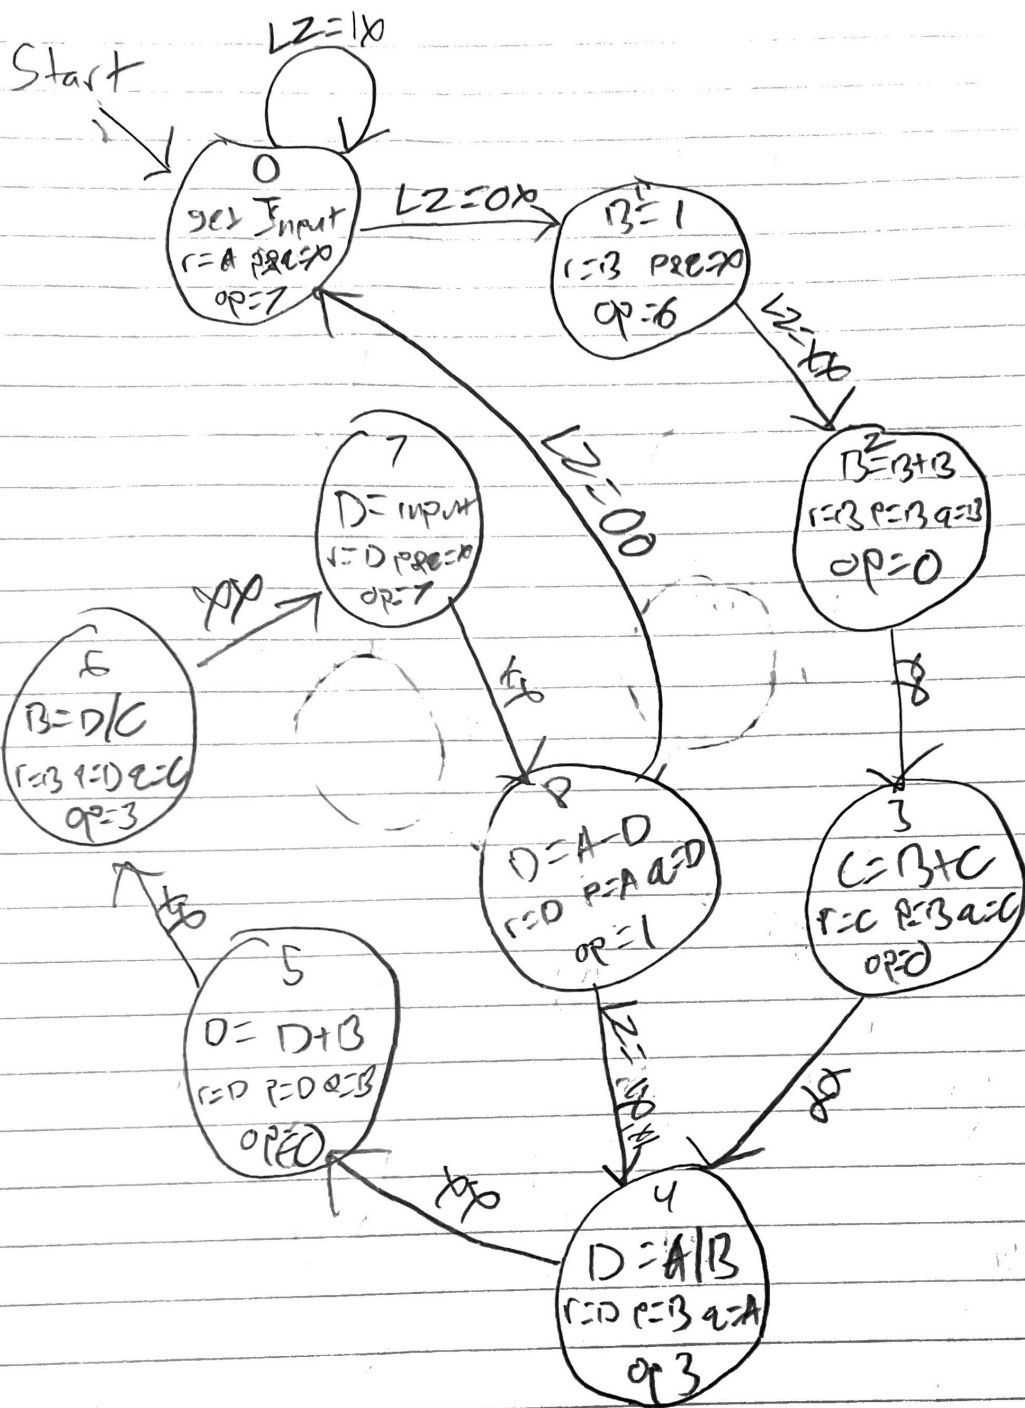 LZ=1X
Start
0
get Input
r=A p&q=X
op=7
LZ=0X
1
B=1
r=B p&q=X
op=6
LZ=XX
2
B=B+B
r=B p=B q=B
op=0
XX
3
C=B+C
r=C p=B q=C
op=0
XX
4
D=A/B
r=D p=B q=A
op 3
XX
5
D= D+B
r=D p=D q=B
op=0
XX
6
B=D/C
r=B q=D q=C
op=3
XX
7
D=input
r=D p&q=X
op=7
XX
8
D=A-D
r=D p=A q=D
op=1
LZ=00